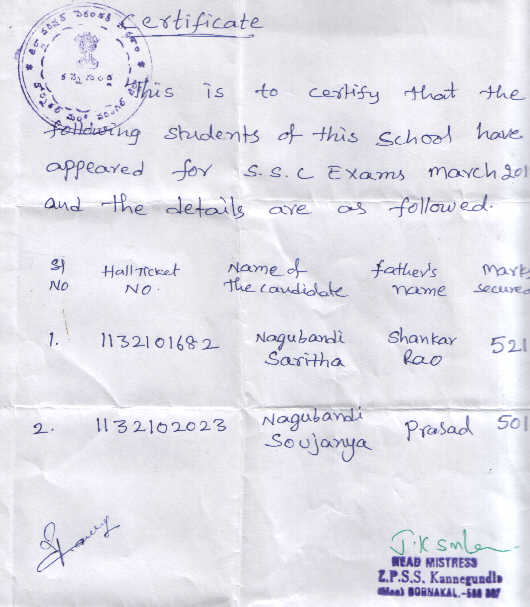 Certificate
This is to certify that the
following students of this school have
appeared for S.S.C Exams march 201
and the details are as followed.
Sl No Hall Ticket No. Name of the candidate father's name Marks secured
1. 1132101682 Nagubandi Saritha Shankar Rao 521
2. 1132102023 Nagubandi Soujanya Prasad 501
HEAD MISTRESS
Z.P.S.S. Kannegundla
BONAKAL.